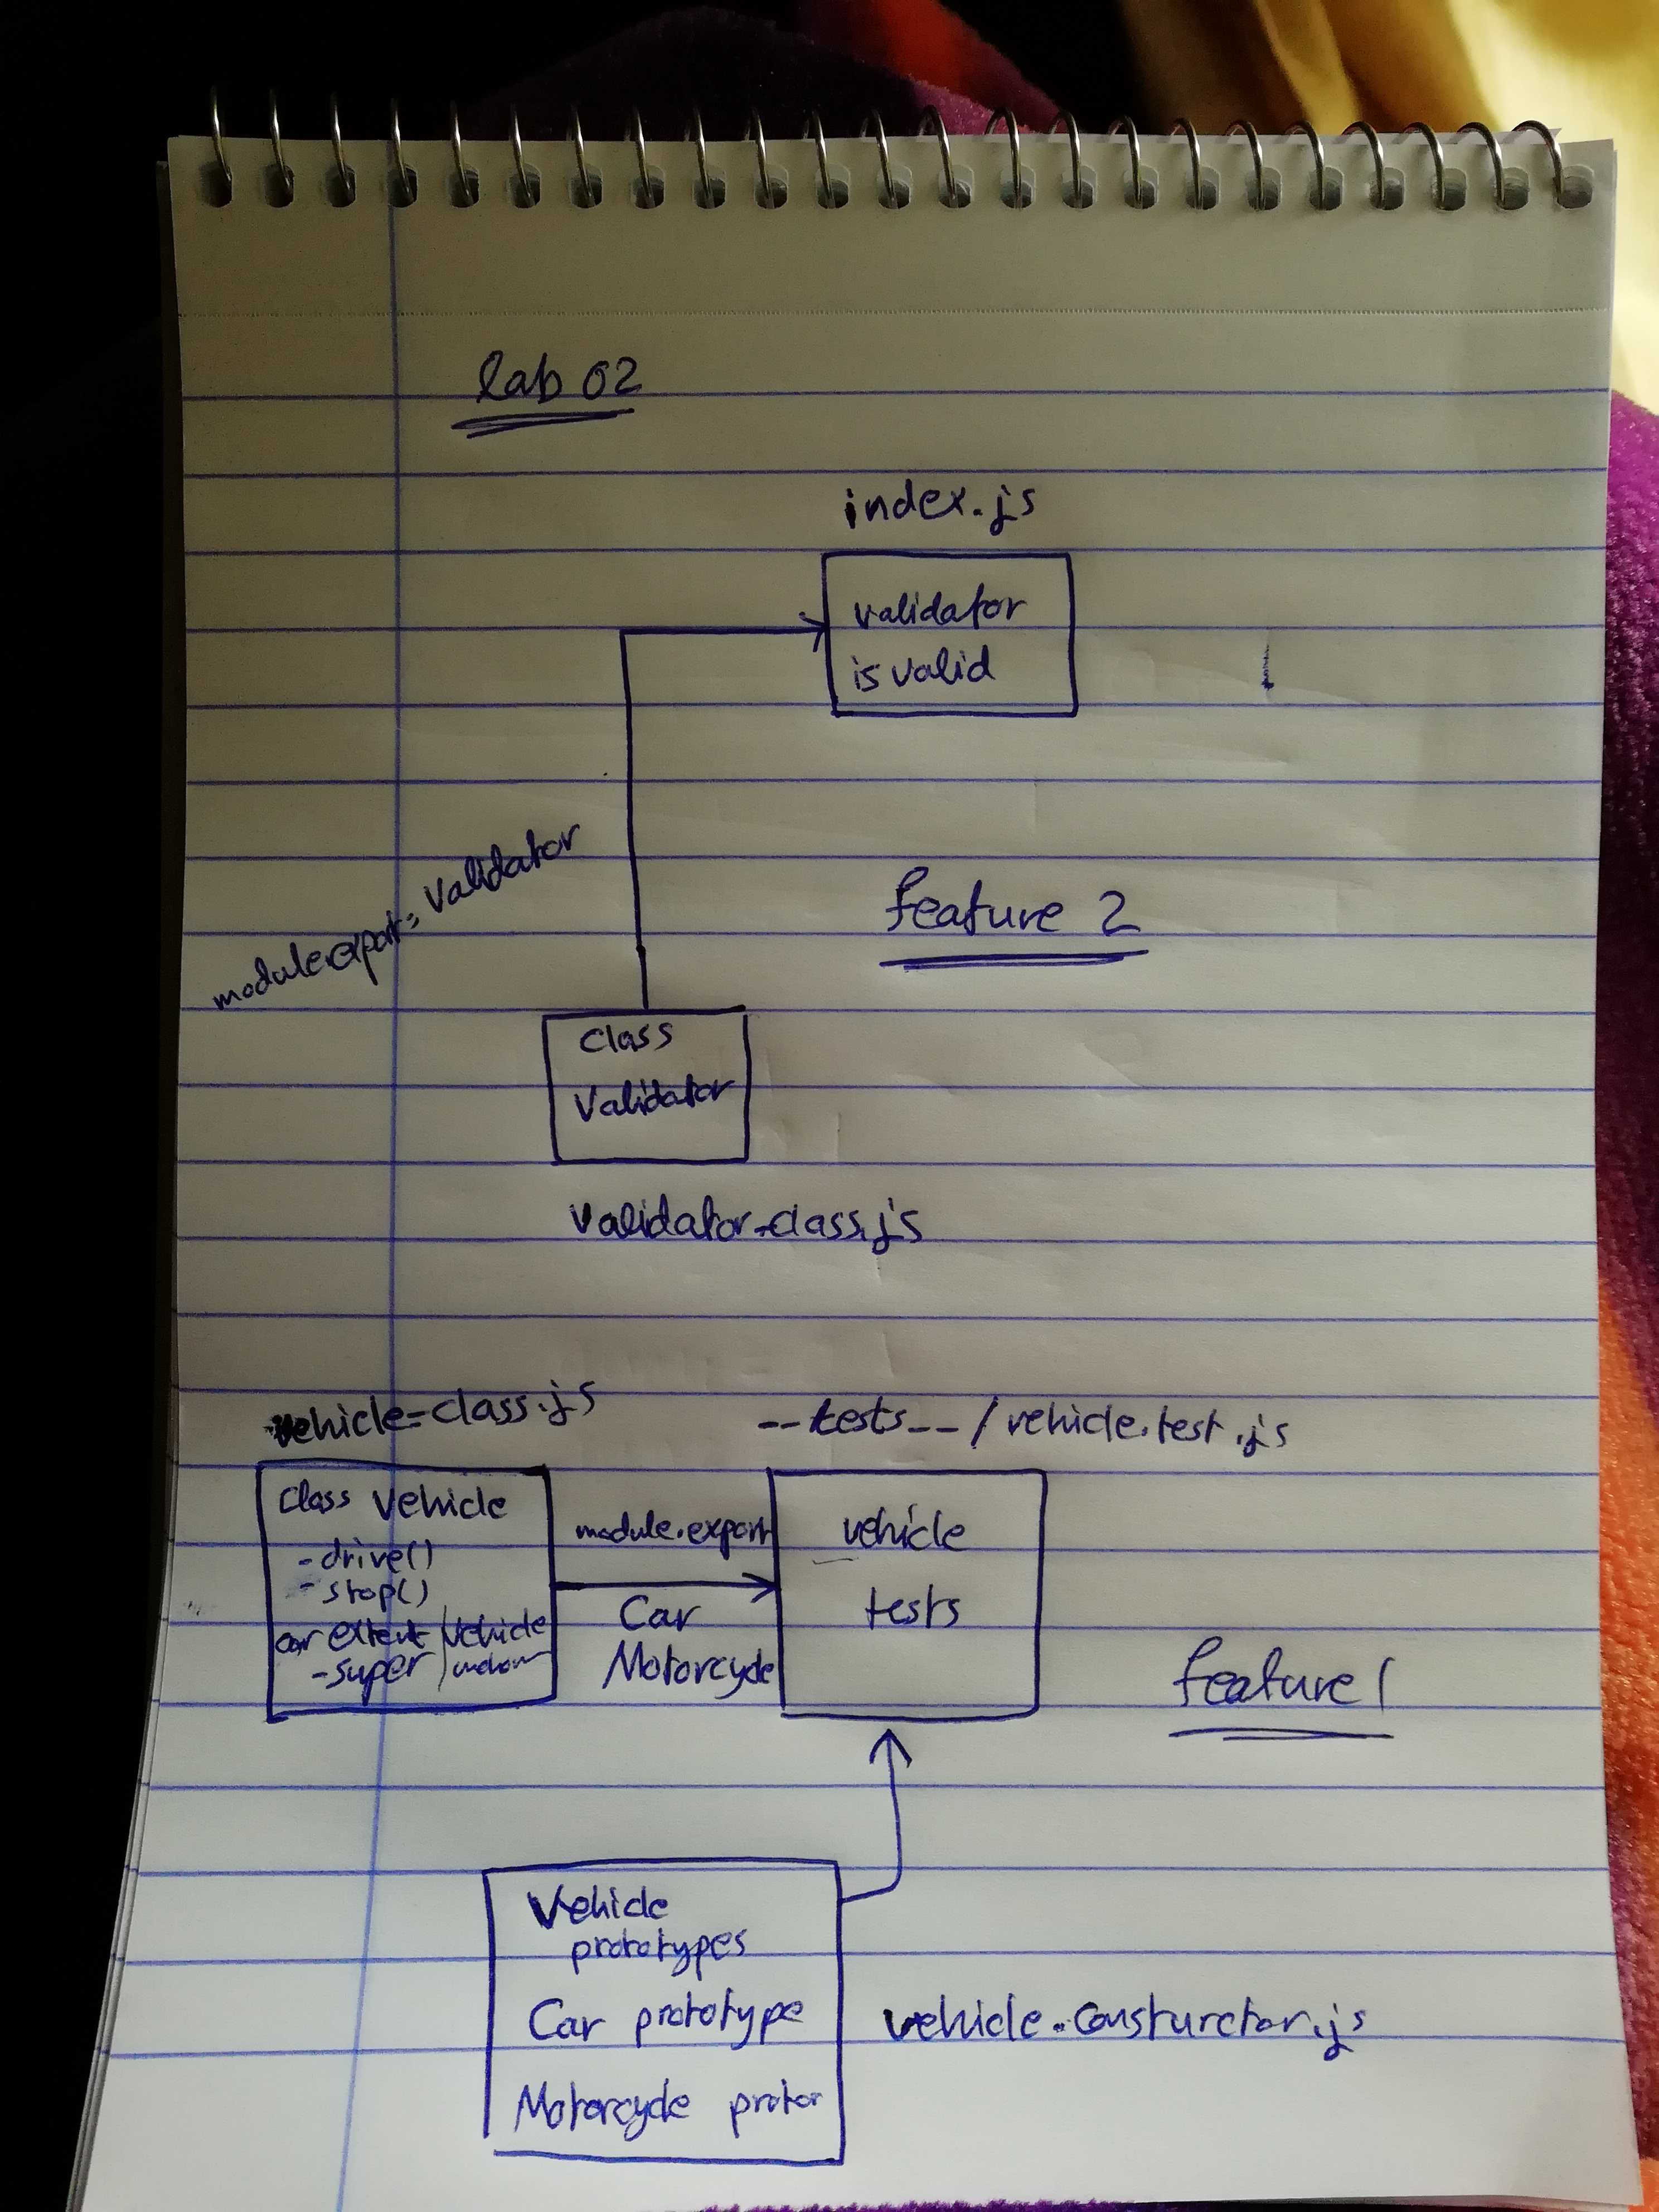 lab 02
index.js
validator
is valid
module.export = Validator
feature 2
class
Validator
Validator-class.js
vehicle-class.js
Class Vehicle
- drive()
- stop()
car extent / Vehicle
- super /
module.export
Car
Motorcycle
--tests-- / vehicle.test.js
vehicle
tests
feature 1
Vehicle
prototypes
Car prototype
Motorcycle proto
vehicle.consturctor.js